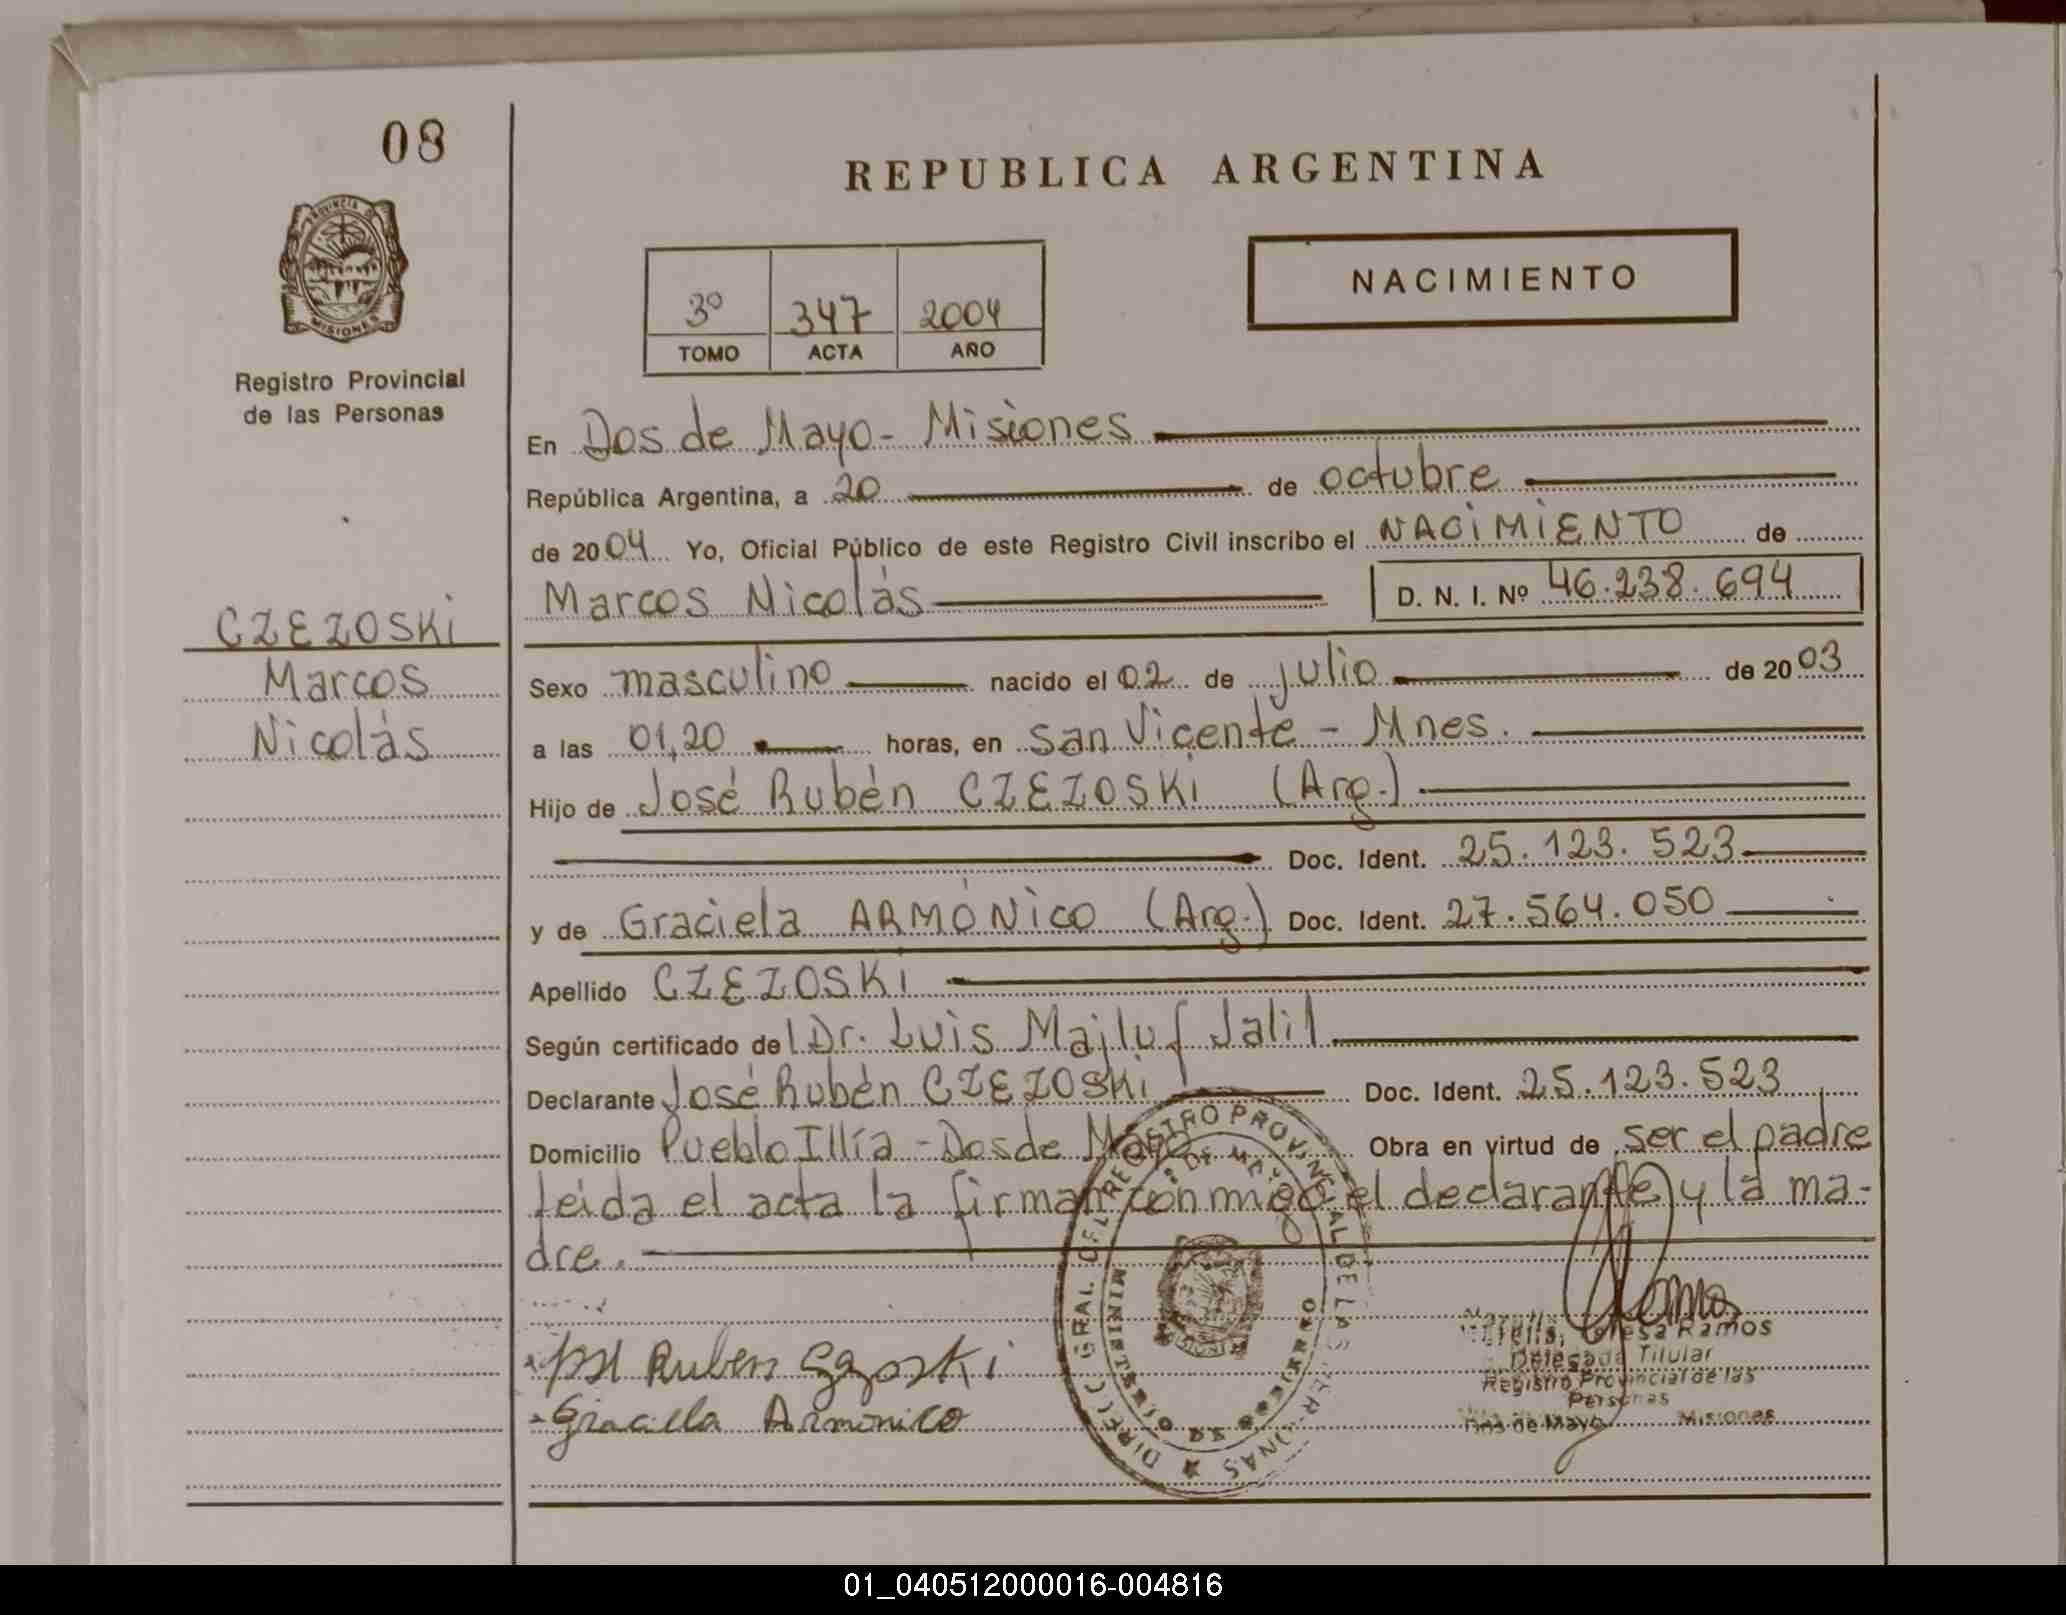 08
REPUBLICA ARGENTINA
PROVINCIA DE
MISIONES
Registro Provincial
de las Personas
NACIMIENTO
3º 347 2004
TOMO ACTA AÑO
En Dos de Mayo - Misiones
República Argentina, a 20 de octubre
de 2004 Yo, Oficial Público de este Registro Civil inscribo el NACIMIENTO de
Marcos Nicolás D. N. I. Nº 46.238.694
CZEZOSKI
Marcos
Nicolás
Sexo masculino nacido el 02 de julio de 2003
a las 01,20 horas, en San Vicente - Mnes.
Hijo de José Rubén CZEZOSKI (Arg.)
Doc. Ident. 25.123.523
y de Graciela ARMÓNICO (Arg.) Doc. Ident. 27.564.050
Apellido CZEZOSKI
Según certificado de l Dr. Luis Majluf Jalil
Declarante José Rubén CZEZOSKI Doc. Ident. 25.123.523
Domicilio Pueblo Illía - Dos de Mayo Obra en virtud de ser el padre
leída el acta la firman conmigo el declarante y la ma-
dre.
Ruben
Graciela Armonico
DIREC. GRAL. DEL REGISTRO PROVINCIAL DE LAS PERSONAS
DE MAYO
MISIONES
Teresa Ramos
Delegada Titular
Registro Provincial de las
Personas
Dos de Mayo Misiones
01_040512000016-004816